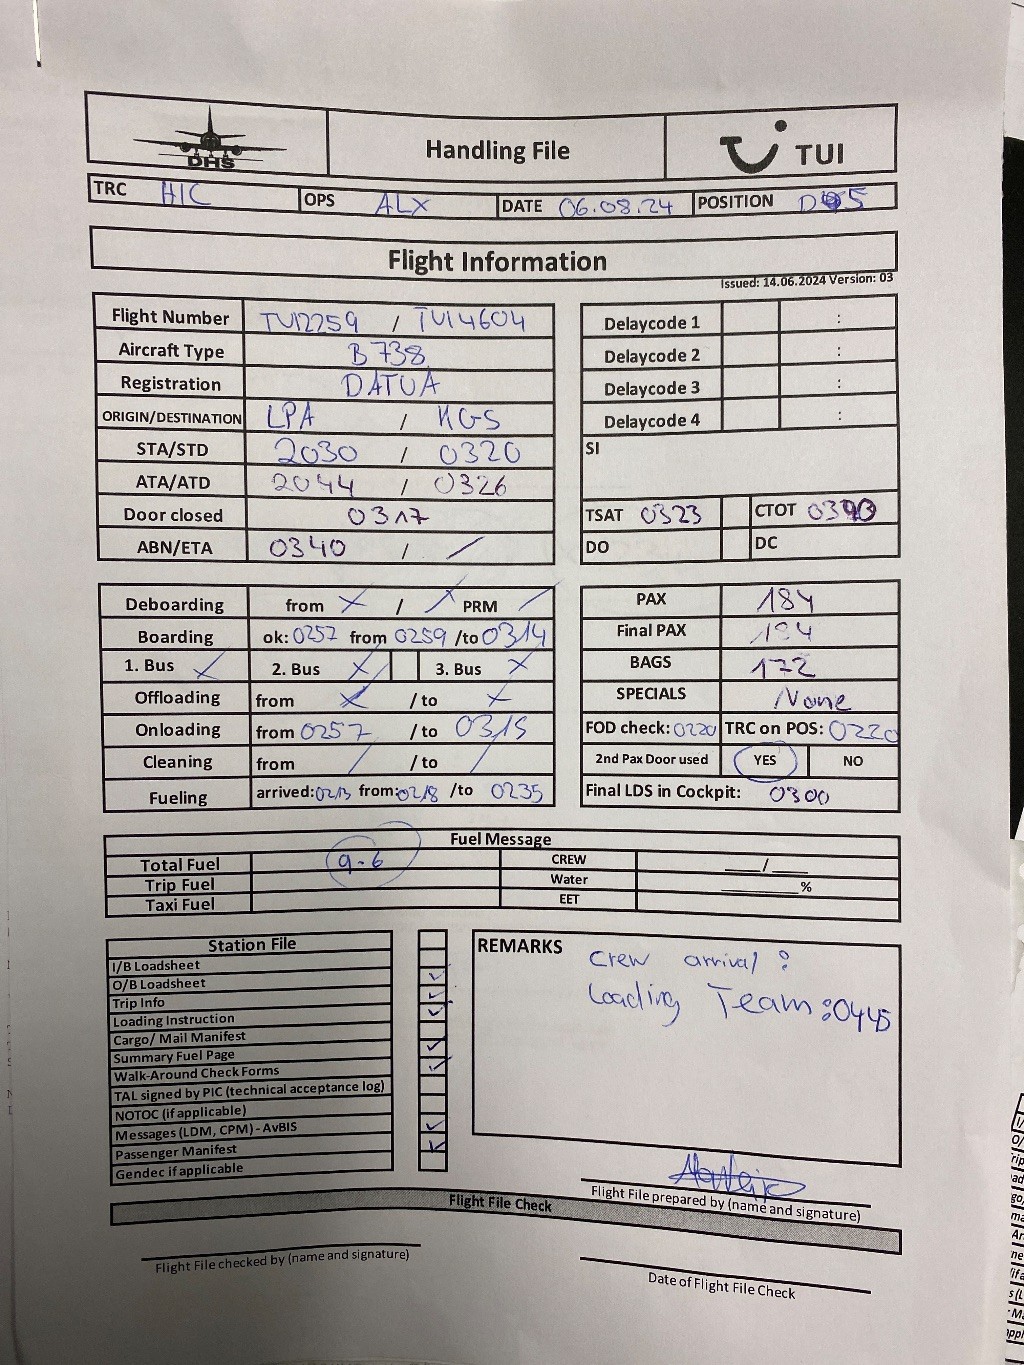 DHS
Handling File
TUI
TRC HIC OPS ALX DATE 06.08.24 POSITION D 5
Flight Information
Issued: 14.06.2024 Version: 03
Flight Number TUI2259 / TUI4604
Aircraft Type B738
Registration DATUA
ORIGIN/DESTINATION LPA / KGS
STA/STD 2030 / 0320
ATA/ATD 2044 / 0326
Door closed 0317
ABN/ETA 0340 /
Delaycode 1 :
Delaycode 2 :
Delaycode 3 :
Delaycode 4 :
SI
TSAT 0323 CTOT
DO DC
Deboarding from / PRM
Boarding ok: 0257 from 0259 /to 0314
1. Bus 2. Bus 3. Bus
Offloading from /to
Onloading from 0257 /to 0315
Cleaning from /to
Fueling arrived: 0213 from: 0218 /to 0235
PAX 184
Final PAX 184
BAGS 172
SPECIALS None
FOD check: 0220 TRC on POS: 0220
2nd Pax Door used YES NO
Final LDS in Cockpit: 0300
Fuel Message
Total Fuel 9.6 CREW /
Trip Fuel Water %
Taxi Fuel EET
Station File
I/B Loadsheet
O/B Loadsheet
Trip Info
Loading Instruction
Cargo/ Mail Manifest
Summary Fuel Page
Walk-Around Check Forms
TAL signed by PIC (technical acceptance log)
NOTOC (if applicable)
Messages (LDM, CPM) - AvBIS
Passenger Manifest
Gendec if applicable
REMARKS Crew arrival :
Loading Team: 0445
Flight File prepared by (name and signature)
Flight File Check
Flight File checked by (name and signature)
Date of Flight File Check